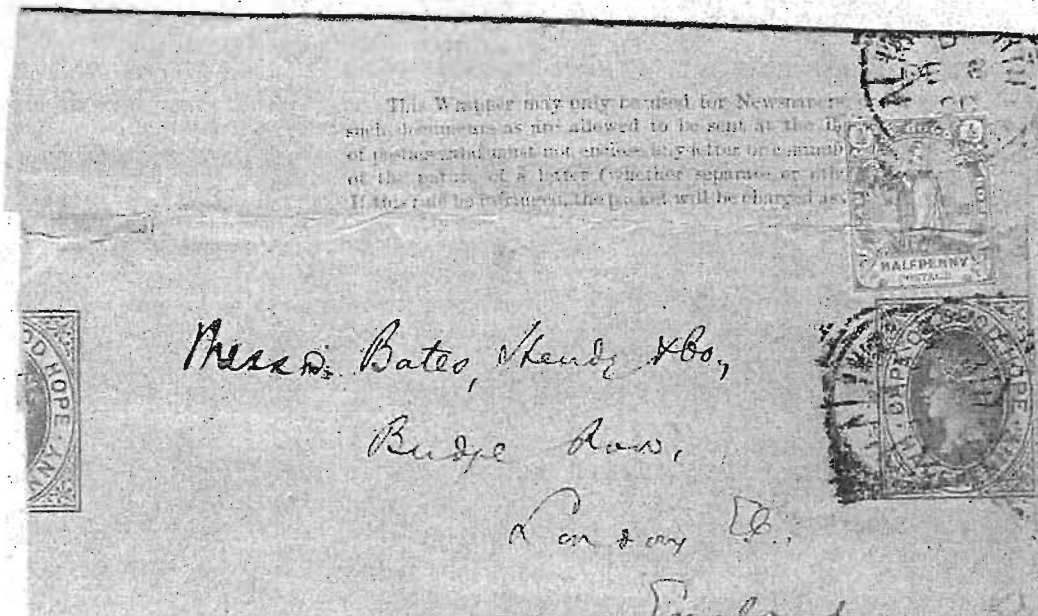 This Wrapper may only be used for Newspapers
such documents as are allowed to be sent at the
of postage and must not enclose any letter or
of the nature of a letter (whether separate or
If this rule be infringed, the packet will be charged as
HALFPENNY
POSTAGE
OOD HOPE
NNY
CAPE OF GOOD HOPE
Messrs. Bates, Hendy & Co,
Budge Row,
London E.C.
England